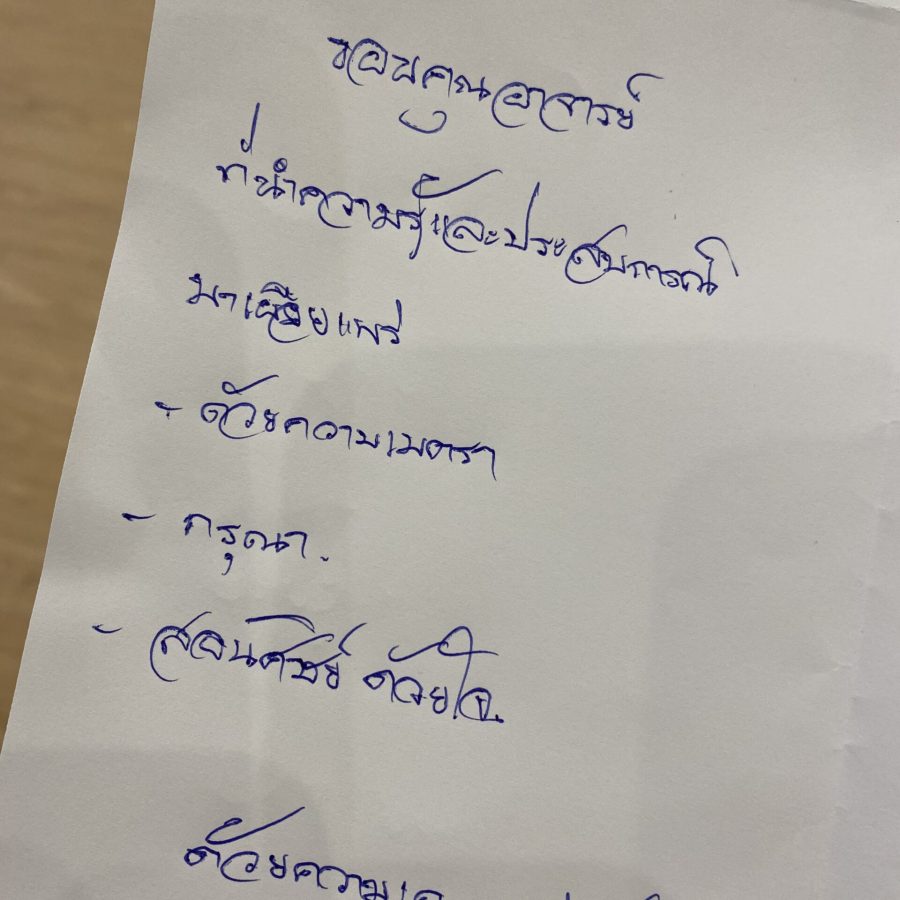 ขอบคุณอาจารย์
ที่นำความรู้และประสบการณ์
มาเผยแพร่
- ด้วยความเมตตา
- กรุณา.
- สอนศิษย์ ด้วยใจ.
ด้วยความ